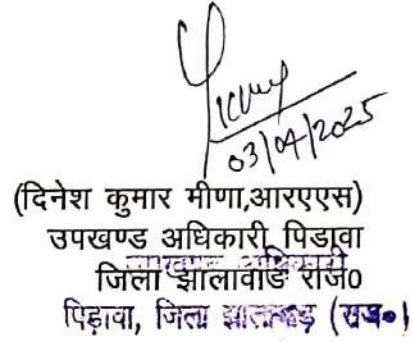 03/04/2025
(दिनेश कुमार मीणा,आरएएस)
उपखण्ड अधिकारी पिडावा
जिला झालावाड राज0
पिड़ावा, जिला झालावाड़ (राज०)